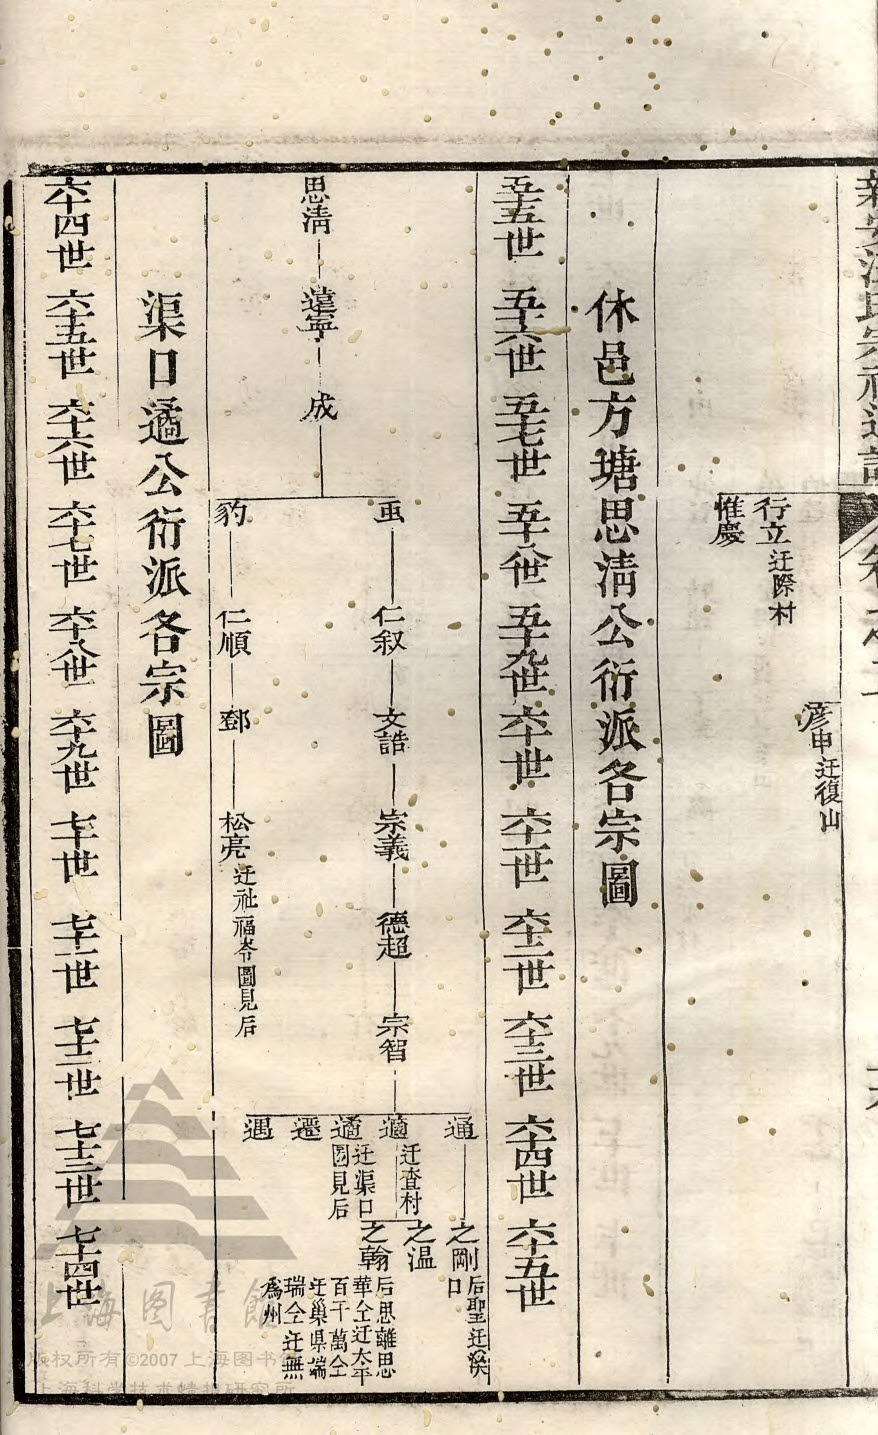 新安汪氏宗祠通譜 卷之二
彥申迁復山
行立迁際村
惟慶
休邑方塘思淸公衍派各宗圖
五十五世 五十六世 五十七世 五十八世 五十九世 六十世 六十一世 六十二世 六十三世 六十四世 六十五世
思淸 蘧寧 成
䖝 仁叙 文誥 宗義 德超 宗智
通 之剛 后聖迁溪口
適 迁査村
之溫
之翰 后思離思華仝迁太平百千萬仝迁巢県端瑞仝迁無為州
遹 迁渠口圖見后
遷
遇
豹 仁順 鄧 松亮 迁祉福岺圖見后
渠口遹公衍派各宗圖
六十四世 六十五世 六十六世 六十七世 六十八世 六十九世 七十世 七十一世 七十二世 七十三世 七十四世
上海图書館
版权所有©2007 上海图书馆
上海科学技术情报研究所